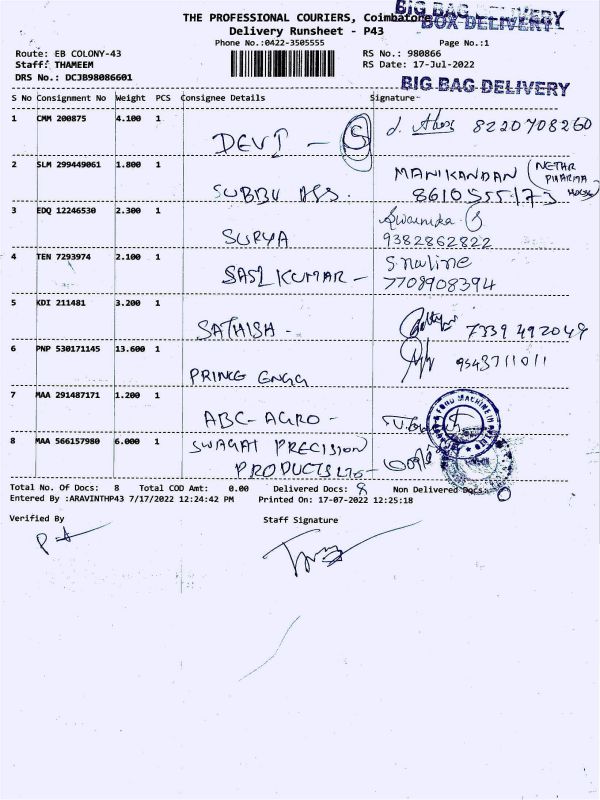 BIG BAG DELIVERY
BOX DELIVERY
THE PROFESSIONAL COURIERS, Coimbatore
Delivery Runsheet - P43
Phone No.:0422-3505555 Page No.:1
Route: EB COLONY-43 RS No.: 980866
Staff: THAMEEM RS Date: 17-Jul-2022
DRS No.: DCJB98086601
BIG BAG DELIVERY
S No Consignment No Weight PCS Consignee Details Signature
1 CMM 200875 4.100 1 DEVI - S 8220708260
2 SLM 299449061 1.800 1 SUBBU MANIKANDAN (NETHR PHARMA
8610555173
3 EDQ 12246530 2.300 1 SURYA
9382862822
4 TEN 7293974 2.100 1 SASI KUMAR - S. naline
7708908394
5 KDI 211481 3.200 1 SATHISH - 7339492049
6 PNP 530171145 13.600 1 PRINCE ENGG 9543711011
7 MAA 291487171 1.200 1 ABC-AGRO -
8 MAA 566157980 6.000 1 SWAGAT PRECISION
PRODUCTS LTD-
Total No. Of Docs: 8 Total COD Amt: 0.00 Delivered Docs: 8 Non Delivered Docs: 0
Entered By :ARAVINTHP43 7/17/2022 12:24:42 PM Printed On: 17-07-2022 12:25:18
Verified By Staff Signature